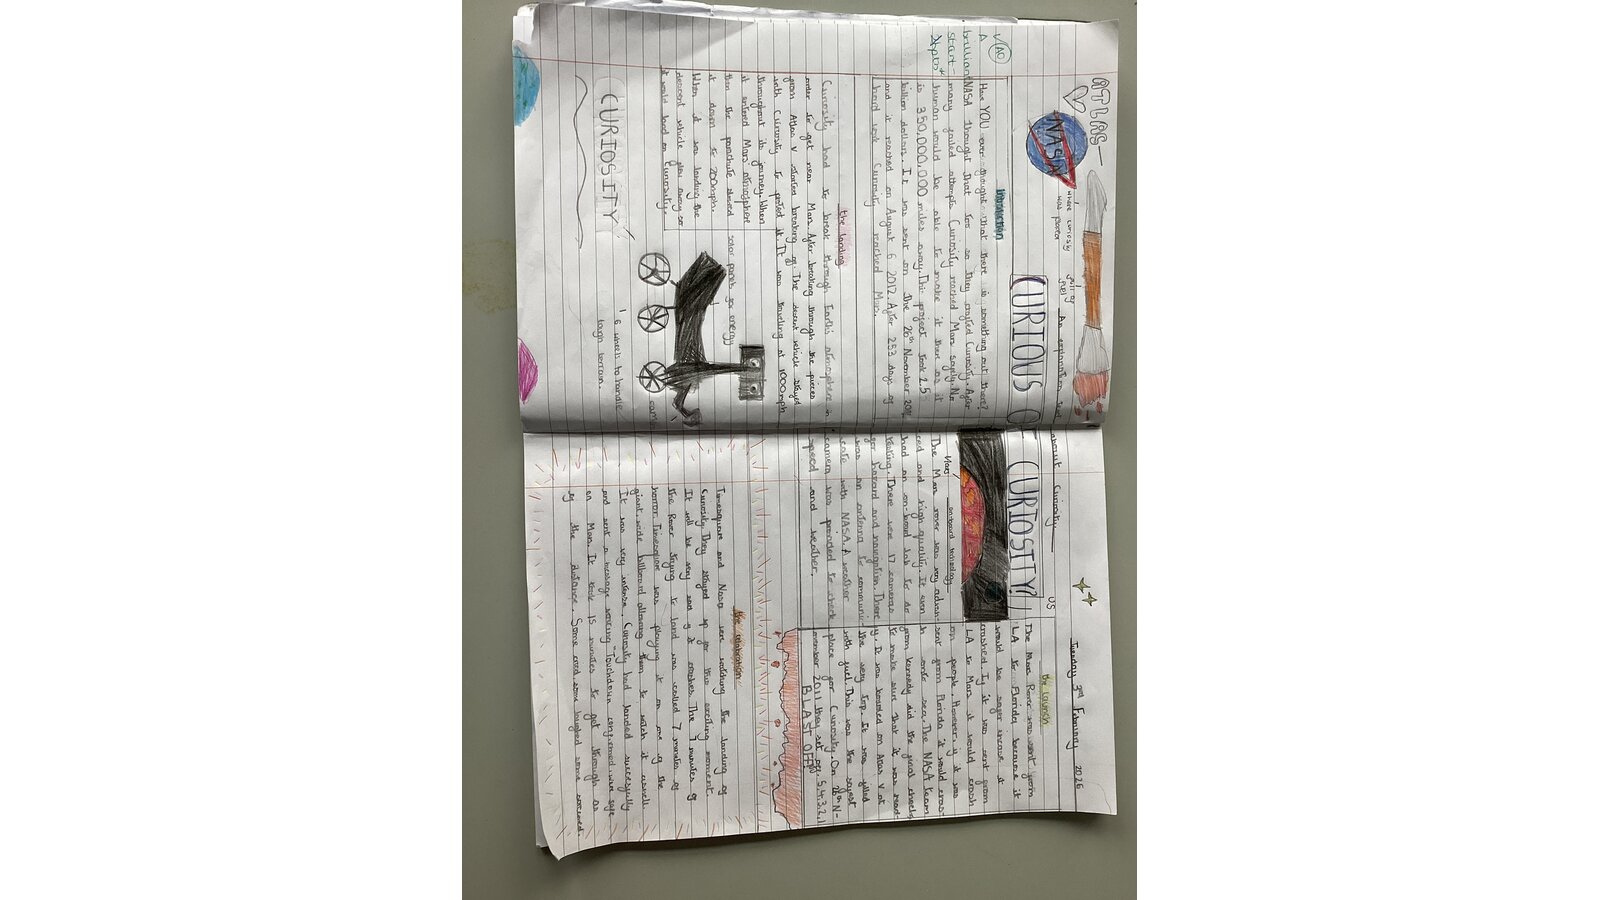 Tuesday 3rd February 2026
ATLAS—
NASA
where curiosity
was placed
full of
fuel
An explanation text about Curiosity
CURIOUS OF CURIOSITY?
AO
brilliant
start -
Introduction
Have YOU ever thought that there is something out there?
NASA thought that too so they crafted Curiosity. After
many failed attempts Curiosity reached Mars safely. No
human would be able to make it there as it
is 350,000,000 miles away. This project took 2.5
billion dollars. It was sent on the 26th November 2011
and it reached on August 6 2012. After 253 days of
hard work Curiosity reached Mars.
the landing
Curiosity had to break through Earths atmosphere in
order to get near Mars. After breaking through the pieces
from Atlas V started breaking of. The decent vehicle stayed
with Curiosity to protect it. It was traveling at 1000mph
throughout its journey. When
it entered Mars atmosphere
then the parachute slowed
it down to 200mph.
When it was landing the
descent vehicle flew away so
it would land on Curiosity.
solar panels for energy
CURIOSITY
6 wheels to handle
tough terrain.
Mars
onboard technology
The Mars rover was very advan-
ced and high quality. It even
had an on-board lab to do
testing. There were 17 cameras
for hazard and navigation. There
was an antenna to communi-
cate with NASA. A weather
camera was provided to check
speed and weather.
US
the launch
The Mars Rover was sent from
LA to Florida because it
would be safer incase it
crashed. If it was sent from
LA to Mars it would crash
on people. However, if it was
sent from Florida it would cras-
h onto sea. The NASA team
from kennedy did the final checks
to make sure that it was read-
y. It was boarded on Atlas V at
the very top. It was filled
with fuel. This was the safest
place for Curiosity. On 26th N-
ovember 2011 they set off. 5,4,3,2,1
BLAST OFF!
the celebration
Timesquare and Nasa were watching the landing of
Curiosity. They stayed up for this exciting moment.
It will be very sad if it crashes. The 7 minutes of
the Rover trying to land was called 7 minutes of
horror. Timesquare was playing it on one of the
giant, wide billboard allowing them to watch it aswell
It was very intense. Curiosity had landed succesfully
and sent a message saying "Touchdown confirmed were safe
on Mars. It took 15 minutes to get through as
of the distance. Some cried some laughed some screamed.